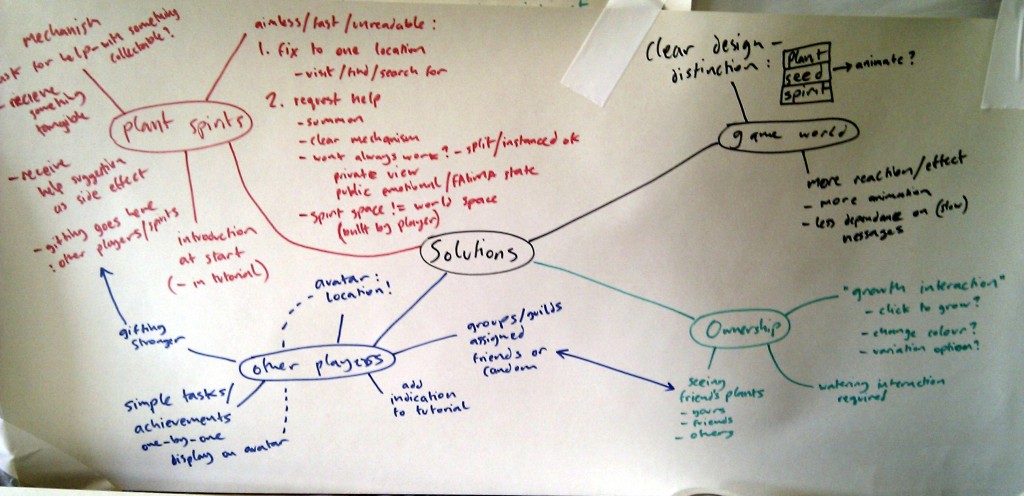 mechanism
ask for help - with something
collectable?
- recieve
something
tangible
- receive
help suggestion
as side effect
- gifting goes here
: other players/spirits
plant spirits
introduction
at start
(- in tutorial)
aimless/fast/unreadable:
1. fix to one location
- visit/find/search for
2. request help
- summon
- clear mechanism
- wont always work? - split/instanced ok
private view
public emotional/FAtiMA state
- spirit space != world space
(built by player)
Clear design -
distinction:
plant
seed
spirit
animate?
game world
more reaction/effect
- more animation
- less dependance on (slow)
messages
Solutions
avatar:
location!
gifting
stronger
other players
groups/guilds
assigned
friends or
random
add
indication
to tutorial
simple tasks/
achievements
one-by-one
display on avatar
Ownership
"growth interaction"
- click to grow?
- change colour?
- variation option?
watering interaction
required
seeing
friends plants
- yours
- friends
- others